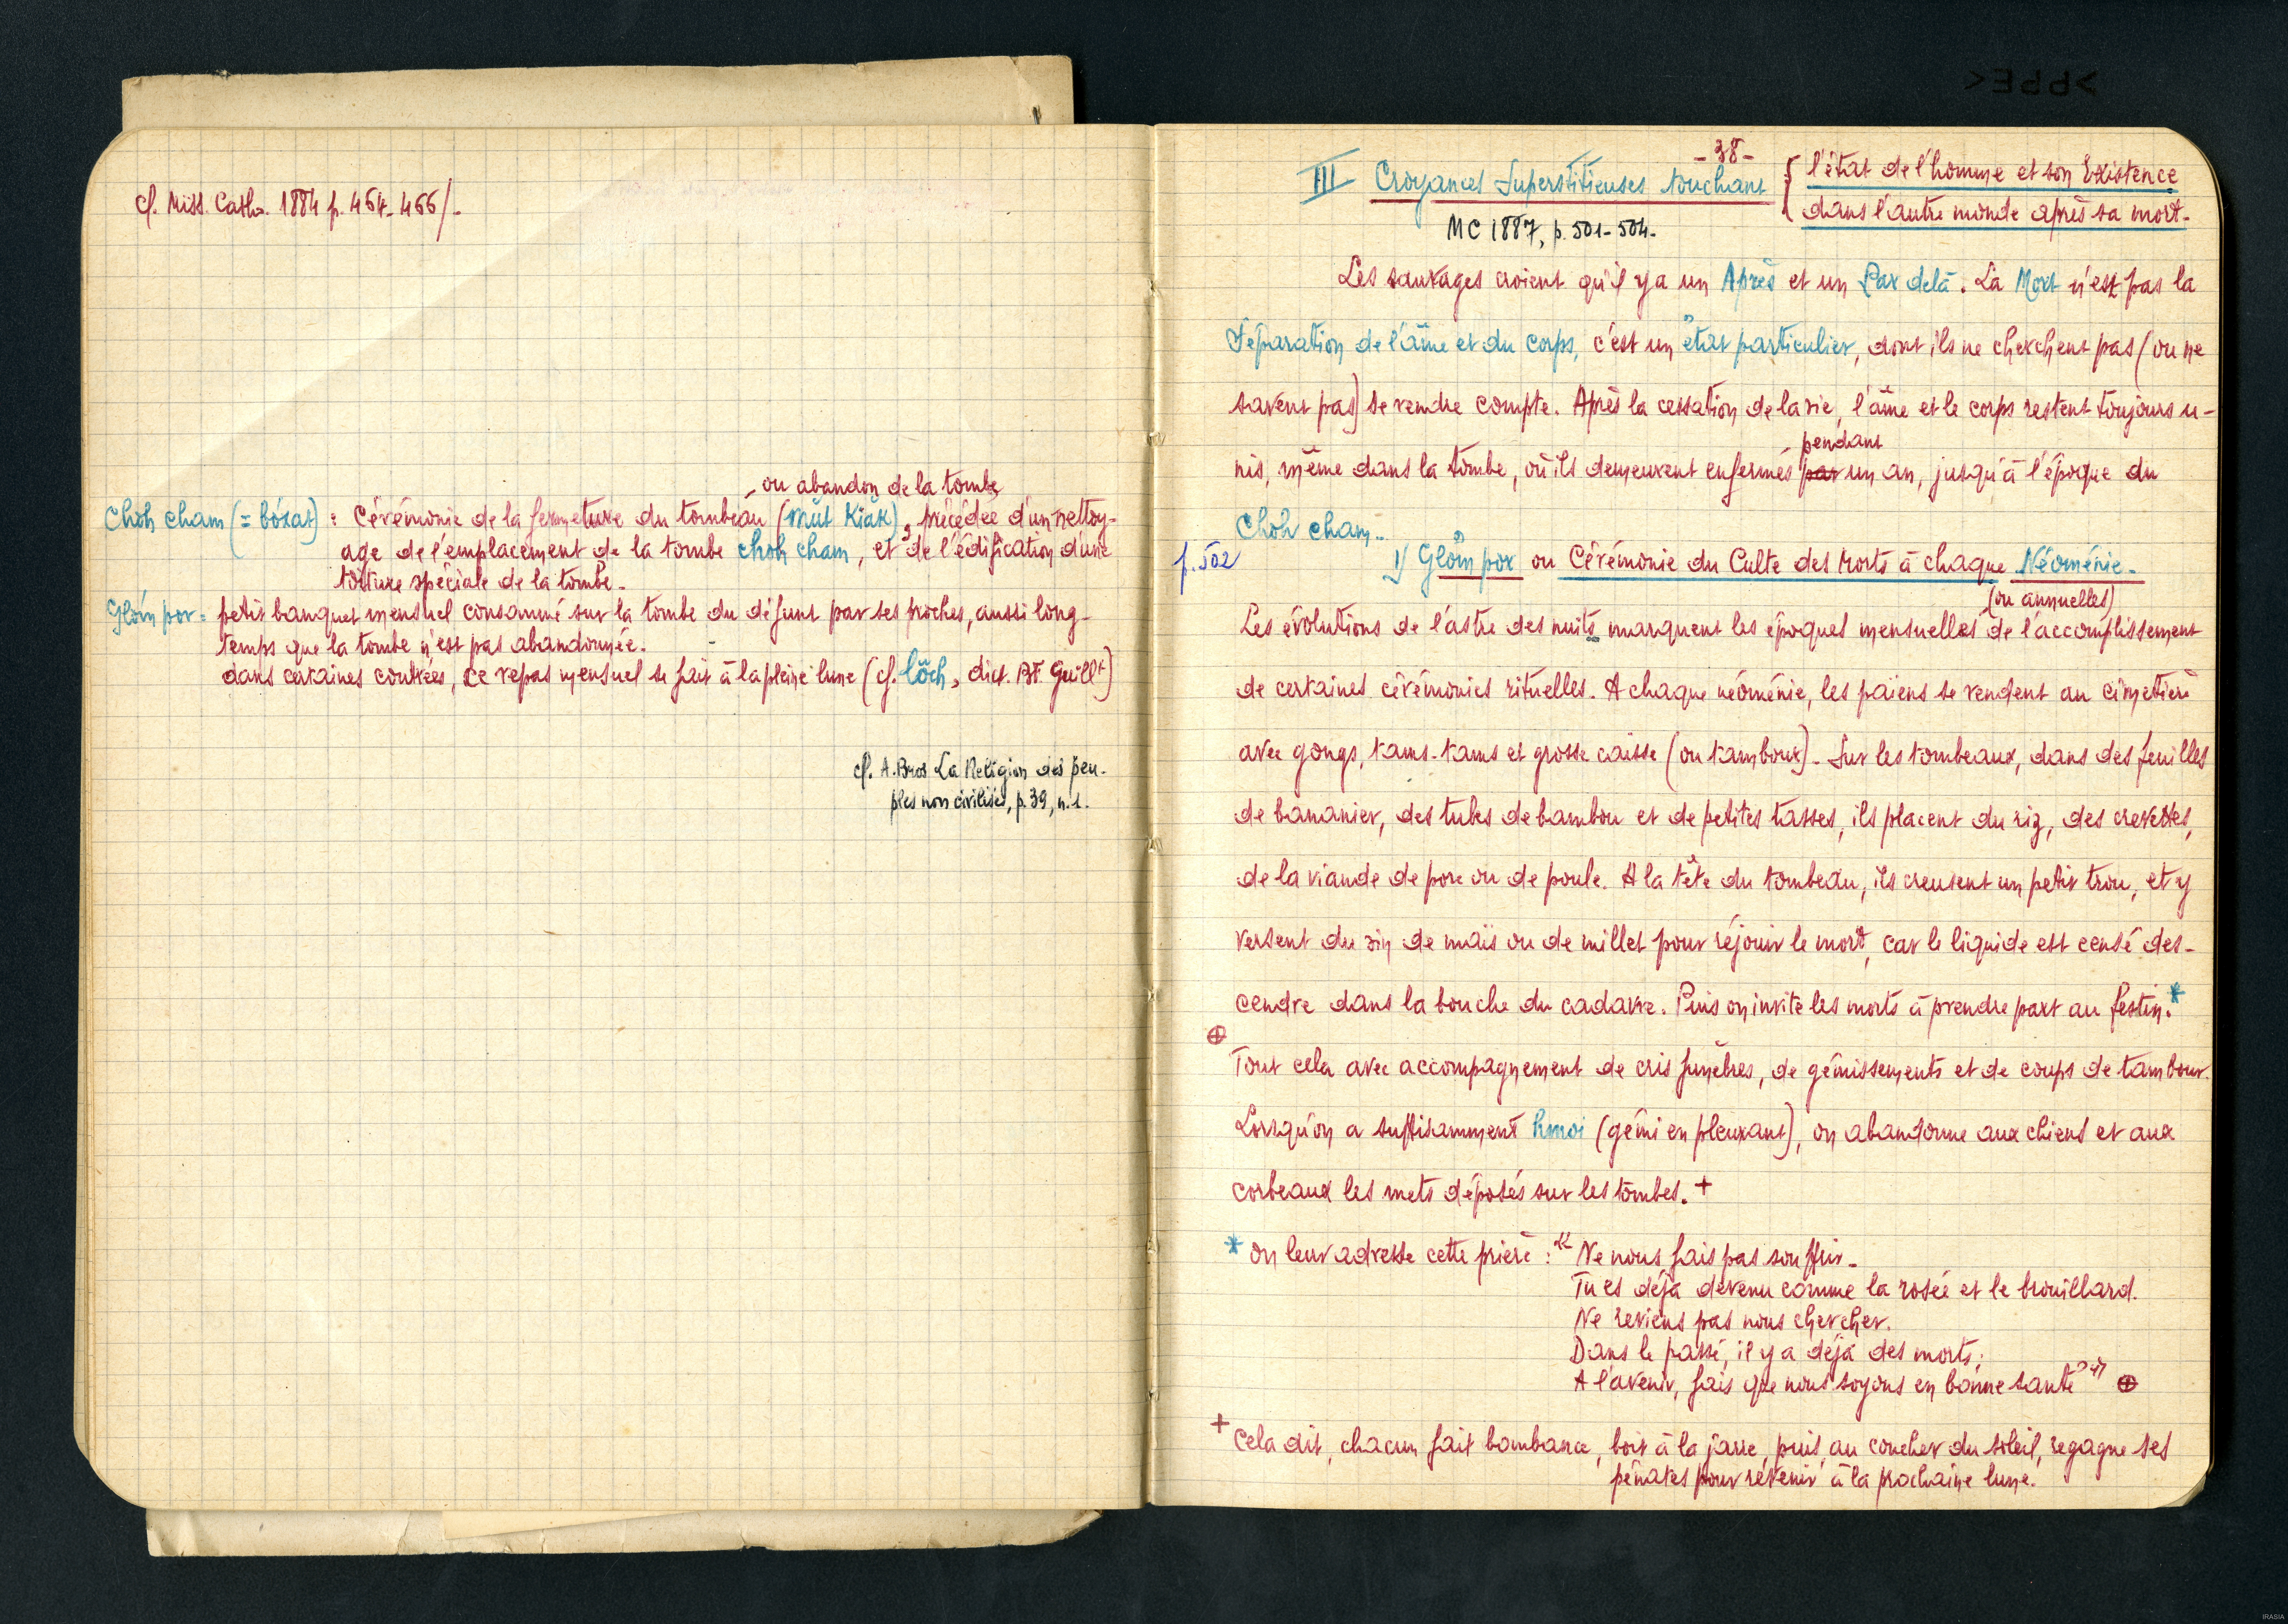 cf. Miss. Cath. 1884 p. 454-455/-
ou abandon de la tombe
Choh cham (= bơxat) : Cérémonie de la fermeture du tombeau (mŭt Kiăk), précédée d'un nettoy-
age de l'emplacement de la tombe choh cham, et de l'édification d'une
toiture spéciale de la tombe.
Glơ̆m por = petit banquet mensuel consommé sur la tombe du défunt par ses proches, aussi long-
temps que la tombe n'est pas abandonnée.
dans certaines contrées, ce repas mensuel se fait à la pleine lune (cf. lŏ̆ch, dict. BF. Guillt)
cf. A. Bros La Religion des peu-
ples non civilisés, p. 39, n. 1.
- 38 -
III Croyances Superstitieuses touchant { l'état de l'homme et son Existence
dans l'autre monde après sa mort.
MC 1887, p. 501-504.
Les sauvages croient qu'il y a un Après et un Par delà. La Mort n'est pas la
Séparation de l'âme et du corps, c'est un état particulier, dont ils ne cherchent pas (ou ne
savent pas) se rendre compte. Après la cessation de la vie, l'âme et le corps restent toujours u-
pendant
nis, même dans la tombe, où ils demeurent enfermés par un an, jusqu'à l'époque du
Choh cham..
p. 502 1) Glơ̆m por ou Cérémonie du Culte des Morts à chaque Néoménie.
(ou annuelles)
Les évolutions de l'astre des nuits marquent les époques mensuelles de l'accomplissement
de certaines cérémonies rituelles. A chaque néoménie, les païens se rendent au cimetière
avec gongs, tams-tams et grosse caisse (ou tambour). Sur les tombeaux, dans des feuilles
de bananier, des tubes de bambou et de petites tasses, ils placent du riz, des crevettes,
de la viande de porc ou de poule. A la tête du tombeau, ils creusent un petit trou, et y
versent du vin de maïs ou de millet pour réjouir le mort, car le liquide est censé des-
cendre dans la bouche du cadavre. Puis on invite les morts à prendre part au festin.*
⊕
Tout cela avec accompagnement de cris funèbres, de gémissements et de coups de tambour.
Lorsqu'on a suffisamment hmoi (gémi en pleurant), on abandonne aux chiens et aux
corbeaux les mets déposés sur les tombes. +
* on leur adresse cette prière : " Ne nous fais pas souffrir.
Tu es déjà devenu comme la rosée et le brouillard.
Ne reviens pas nous chercher.
Dans le passé, il y a déjà des morts ;
A l'avenir, fais que nous soyons en bonne santé " ⊕
+ Cela dit, chacun fait bombance, boit à la jarre, puis, au coucher du soleil, regagne ses
pénates pour revenir à la prochaine lune.